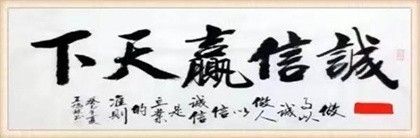 誠信贏天下
做事以誠做人以信誠信是立業的准则